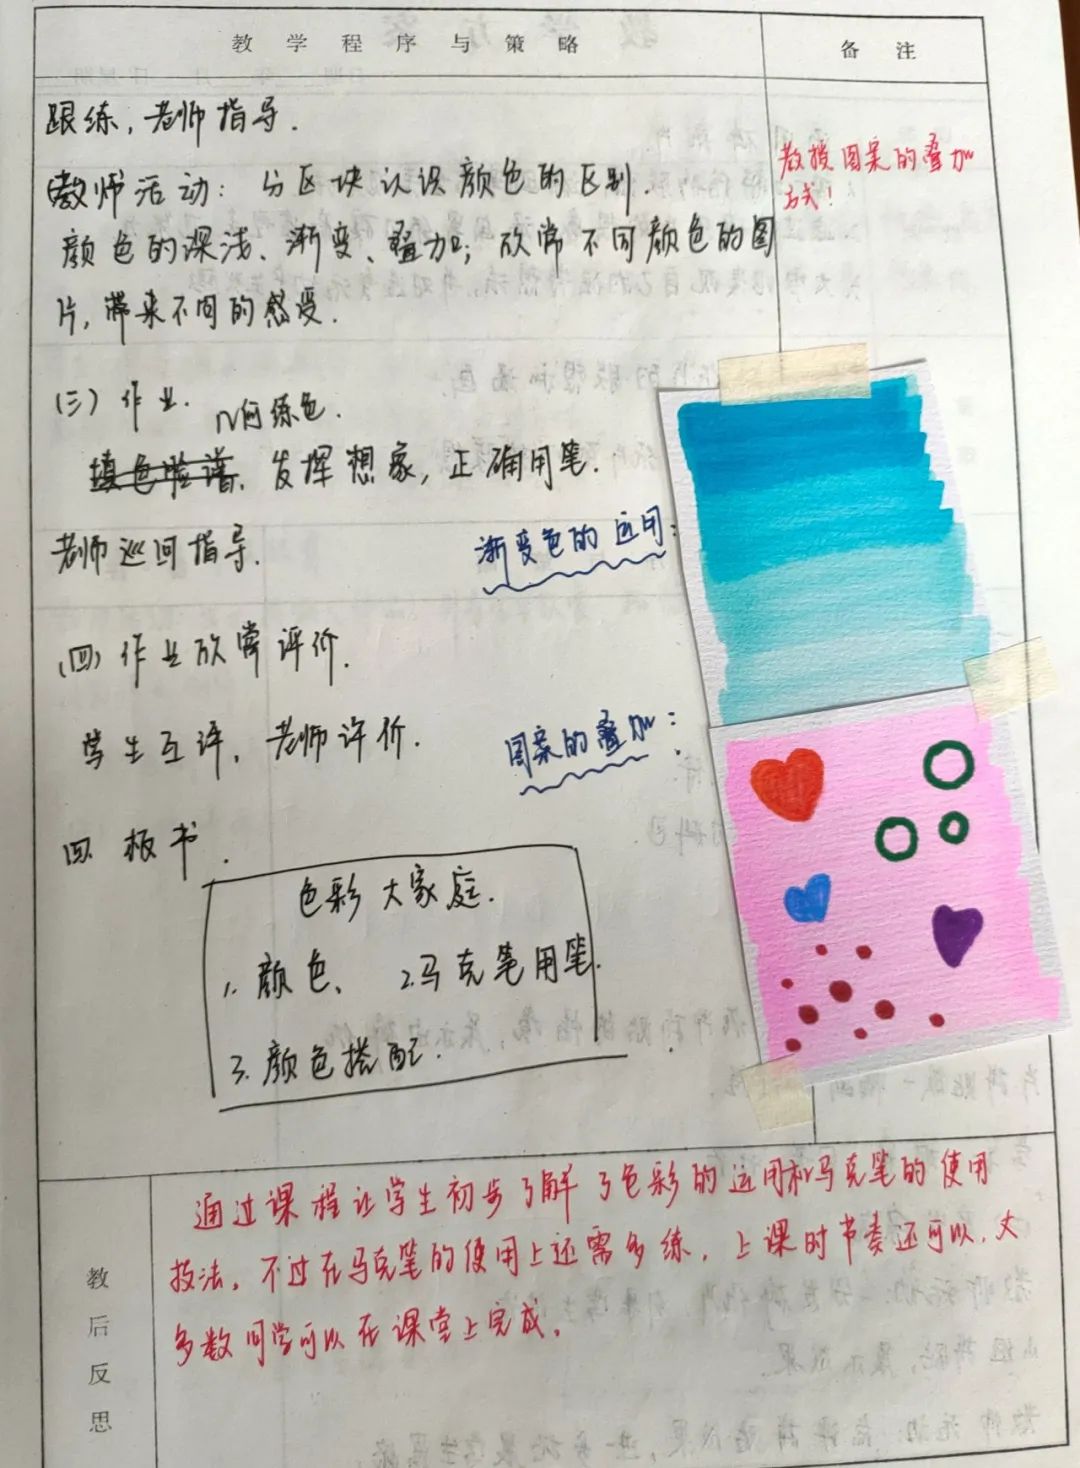 教学程序与策略
备注
跟练，老师指导.
教师活动：分区块认识颜色的区别.
颜色的深浅、渐变、叠加；欣常不同颜色的图
片，带来不同的感受.
教授图案的叠加
方式！
(三)作业.
几何练色.
填色脸谱. 发挥想象，正确用笔.
老师巡回指导.
渐变色的运用：
(四)作业欣常评价.
学生互评，老师评价.
图案的叠加：
四 板书.
色彩大家庭.
1.颜色、 2.马克笔用笔.
3.颜色搭配.
教后反思
通过课程让学生初步了解了色彩的运用和马克笔的使用
技法，不过在马克笔的使用上还需多练，上课时节奏还可以，大
多数同学可以在课堂上完成。